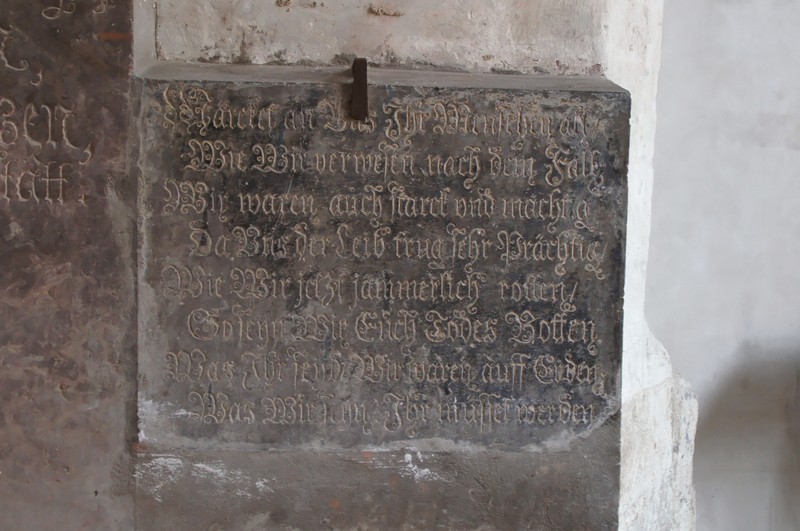 Marckt an Uns Ihr Menschen all
Wie Wir verwesen nach dem Fall
Wir waren auch starck und mächtig
Da Uns der Leib trug sehr Prächtig
Wie Wir jetzt jämmerlich rotten/
So seyn Wir Euch Todes Botten
Was Ihr seyd/ Wir waren auff Erden
Was Wir sein/ Ihr müsset werden